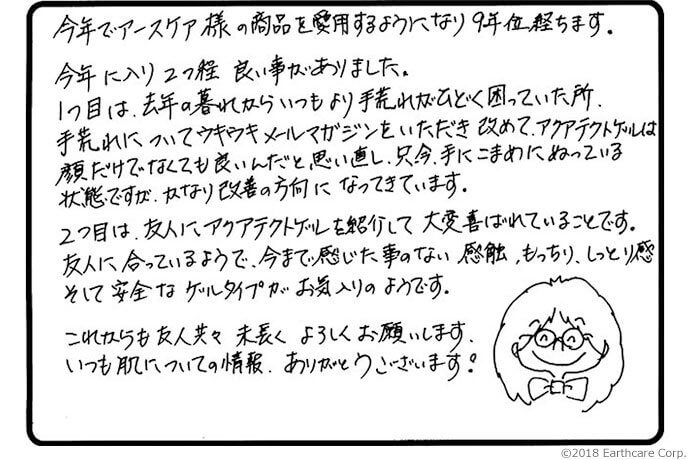 今年でアースケア様の商品を愛用するようになり9年位経ちます。
今年に入り2つ程良い事がありました。
1つ目は、去年の暮れからいつもより手荒れがひどく困っていた所、
手荒れについてウキウキメールマガジンをいただき改めて、アクアテクトゲルは
顔だけでなくても良いんだと思い直し、只今、手にこまめにぬっている
状態ですが、かなり改善の方向になってきています。
2つ目は、友人にアクアテクトゲルを紹介して大変喜ばれていることです。
友人に合っているようで、今まで感じた事のない感触、もっちり、しっとり感
そして安全なゲルタイプがお気入りのようです。
これからも友人共々末長くよろしくお願いします。
いつも肌についての情報、ありがとうございます。
©2018 Earthcare Corp.